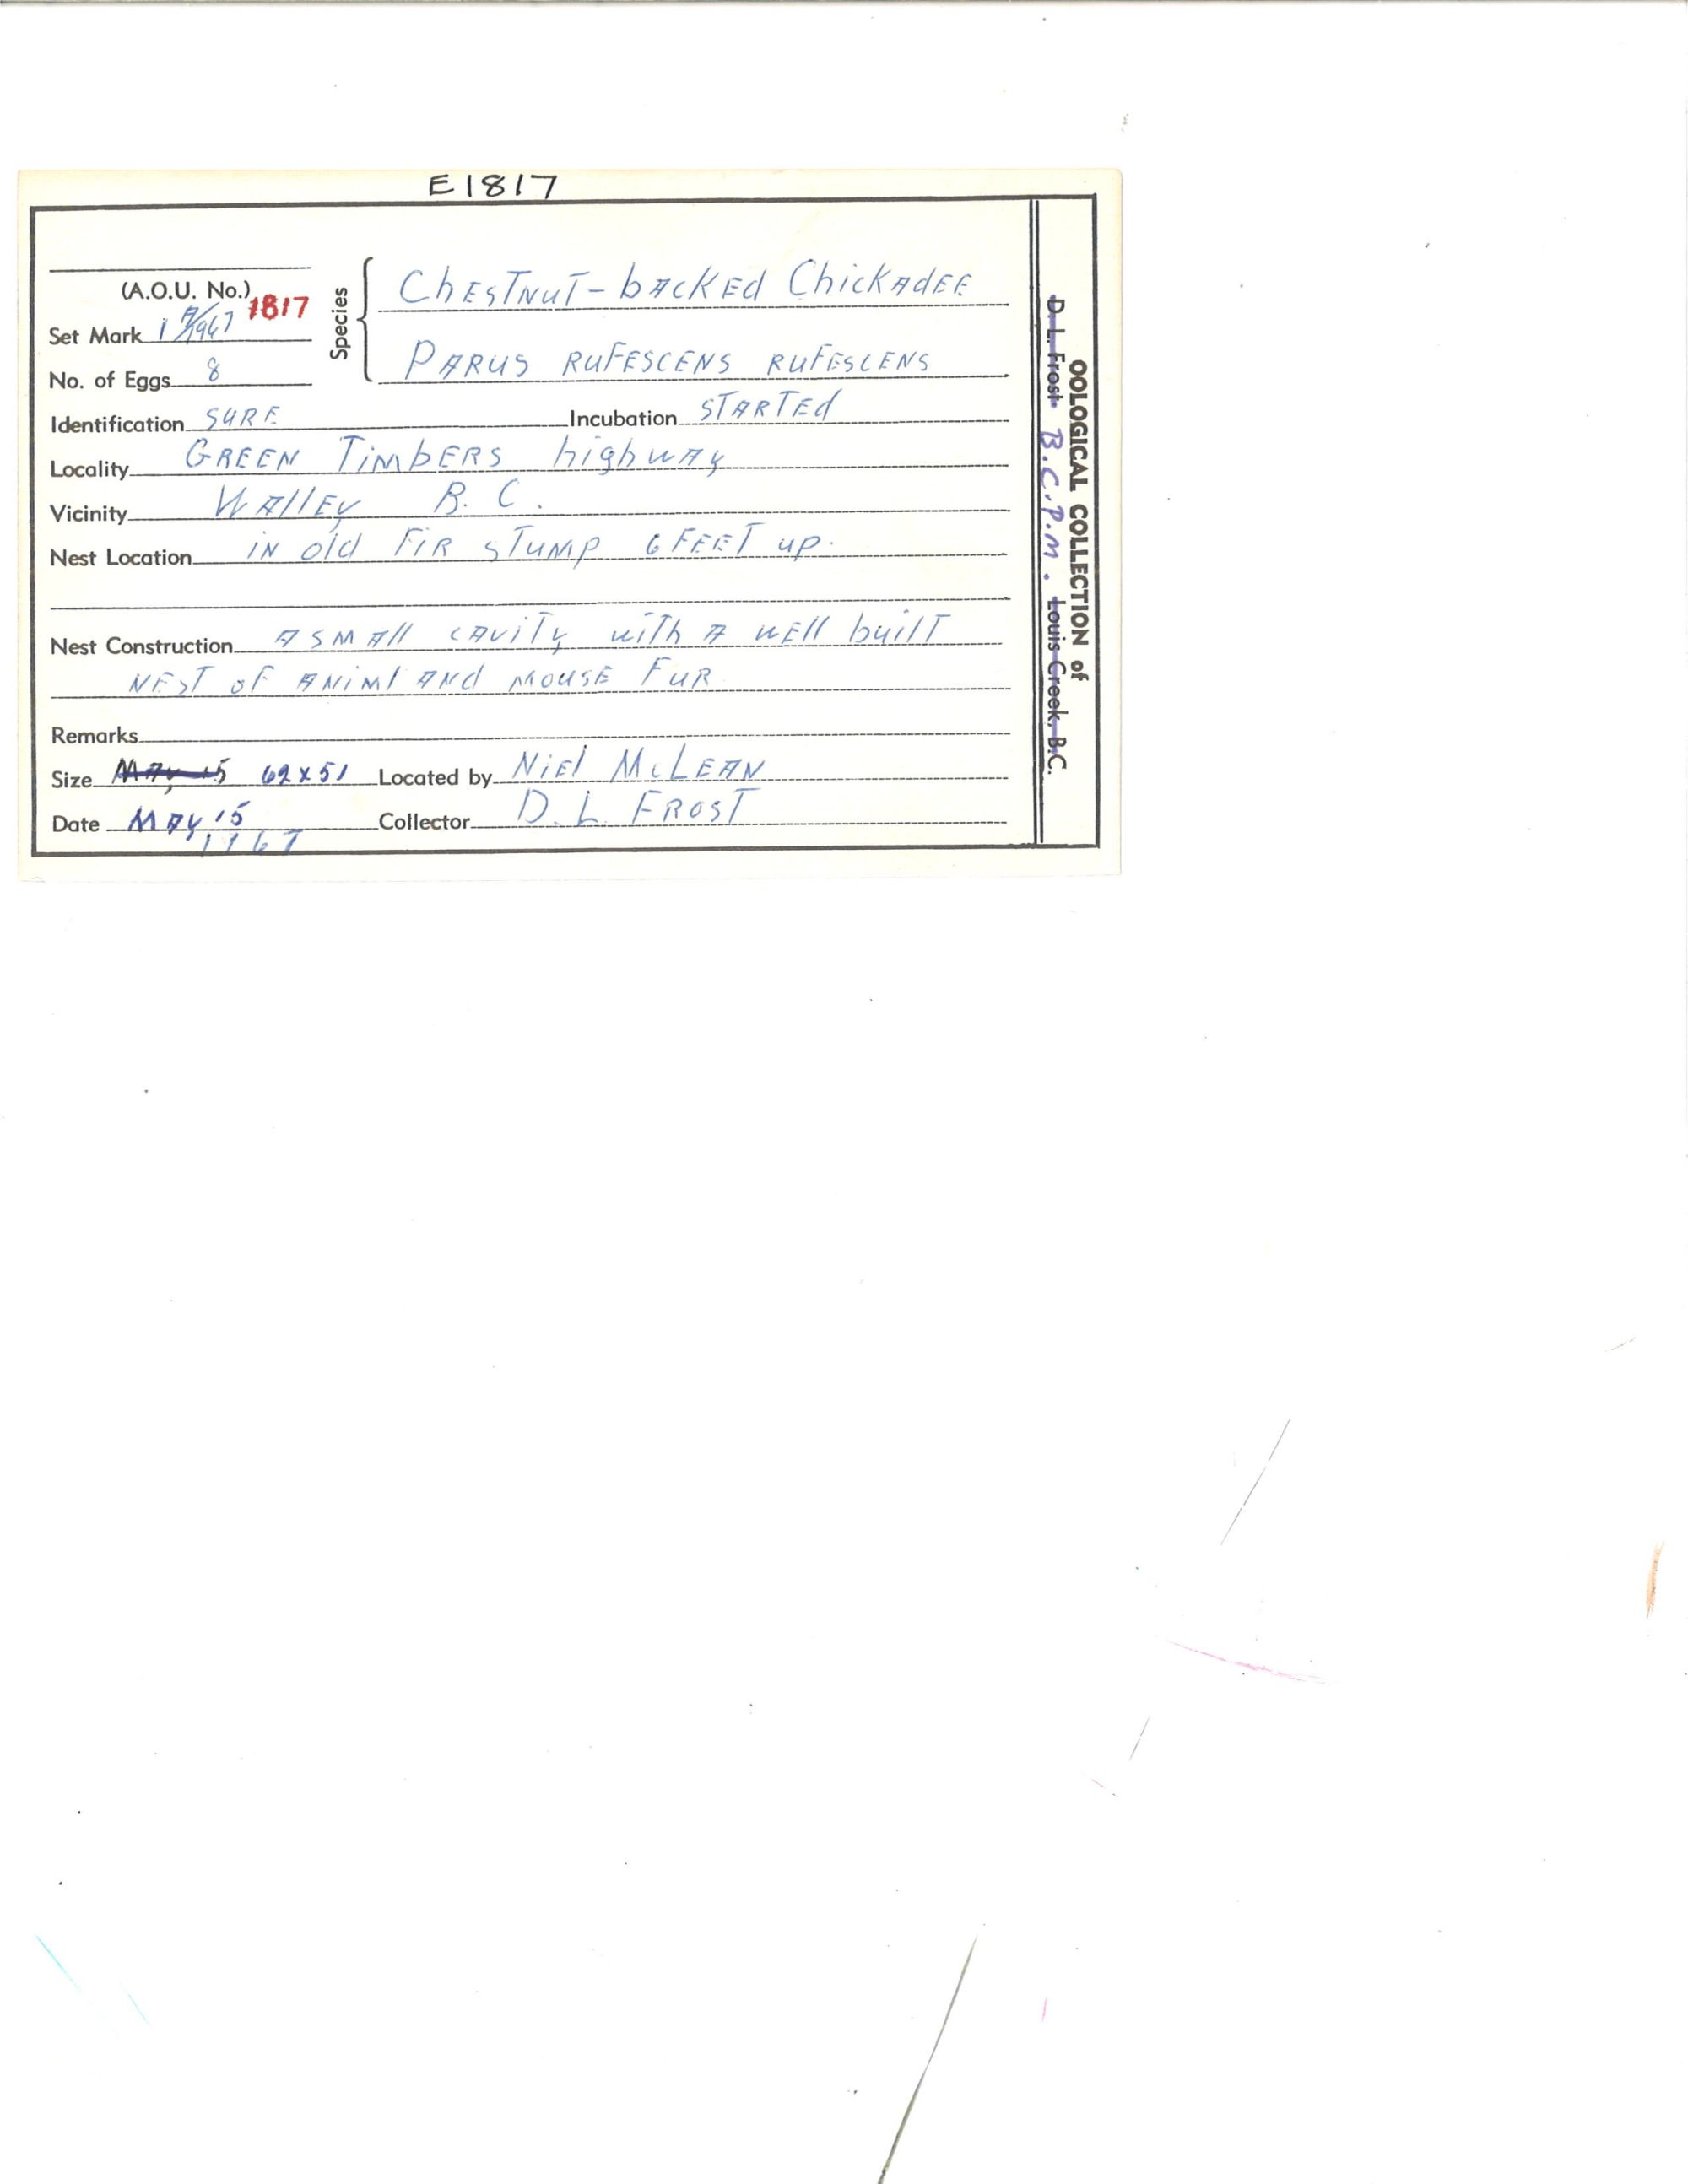 E1817
(A.O.U. No.) 1817
Set Mark 1 A/1967
No. of Eggs 8
Species
Chestnut-backed Chickadee
Parus rufescens rufescens
Identification SURE Incubation STARTED
Locality GREEN TimbERS highway
Vicinity WAllEy B. C.
Nest Location iN old FiR sTump 6 FEET up.
Nest Construction A SMAll cAviTy wiTh A wEll builT
NEsT oF ANiMl ANd MousE FuR
Remarks
Size May 15 62 x 51 Located by NiEl McLEAN
Date MAy 15 1967 Collector D. L. FROST
OOLOGICAL COLLECTION of
D. L. Frost B.C.P.M. Louis Creek, B.C.